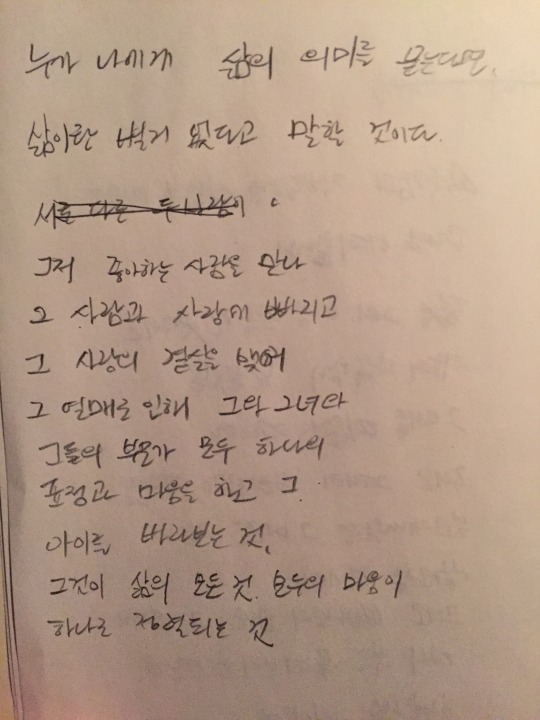 누가 나에게 삶의 의미를 묻는다면,
삶이란 별거 없다고 말할 것이다.
서로 다른 두 사람이
그저 좋아하는 사람을 만나
그 사람과 사랑에 빠지고
그 사랑의 결실을 맺어
그 열매로 인해 그와 그녀와
그들의 부모가 모두 하나의
표정과 마음을 하고 그
아이를 바라보는 것,
그것이 삶의 모든 것. 모두의 마음이
하나로 정렬되는 것